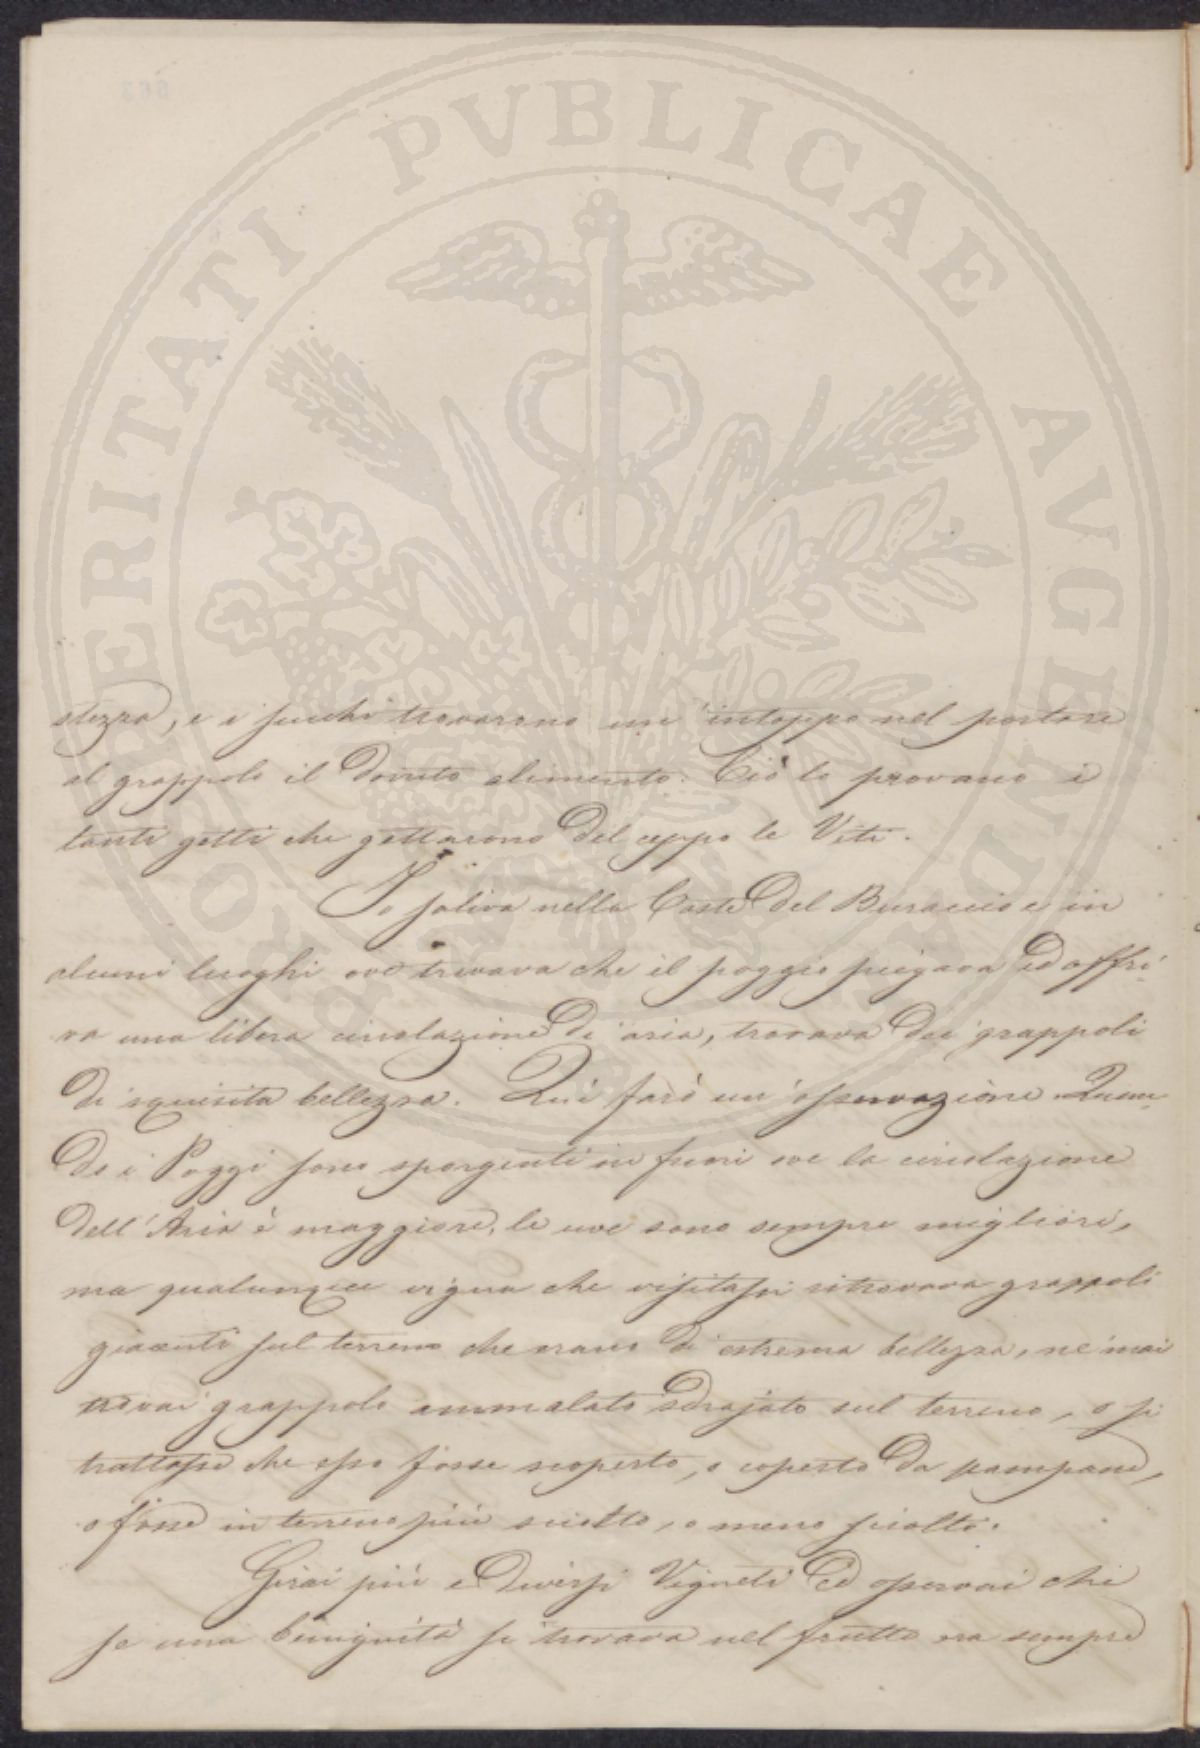 PROSPERITATI PVBLICAE AVGENDAE
stezza, e i succhi trovarono un intoppo nel portare
al grappolo il dovuto alimento. Ciò lo provano i
tanti getti che gettarono del ceppo le Viti.
Io saliva nella Coste del Buraccio e in
alcuni luoghi ove trovava che il poggio piegava ed offri-
va una libera circolazione di aria, trovava dei grappoli
di squisita bellezza. Quì farò un'osservazione. Quan-
do i Poggi sono sporgenti in fuori ove la circolazione
dell'Aria è maggiore, le uve sono sempre migliori,
ma qualunque vigna che visitassi ritrovava grappoli
giacenti sul terreno che erano di estrema bellezza, ne mai
trovai grappolo ammalato sdrajato sul terreno, o si
trattasse che esso fosse scoperto, o coperto da pampane,
o fosse in terreno più sciolto, o meno sciolto.
Girai più e diversi Vigneti ed osservai che
se una benignità si trovava nel frutto era sempre